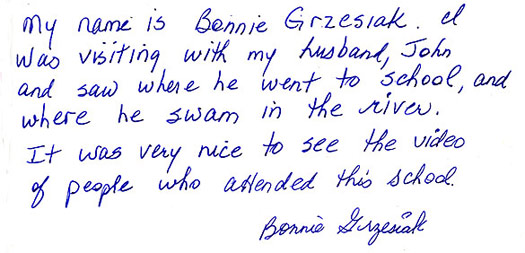 My name is Bonnie Grzesiak. I
was visiting with my husband, John
and saw where he went to school, and
where he swam in the river.
It was very nice to see the video
of people who attended this school.
Bonnie Grzesiak